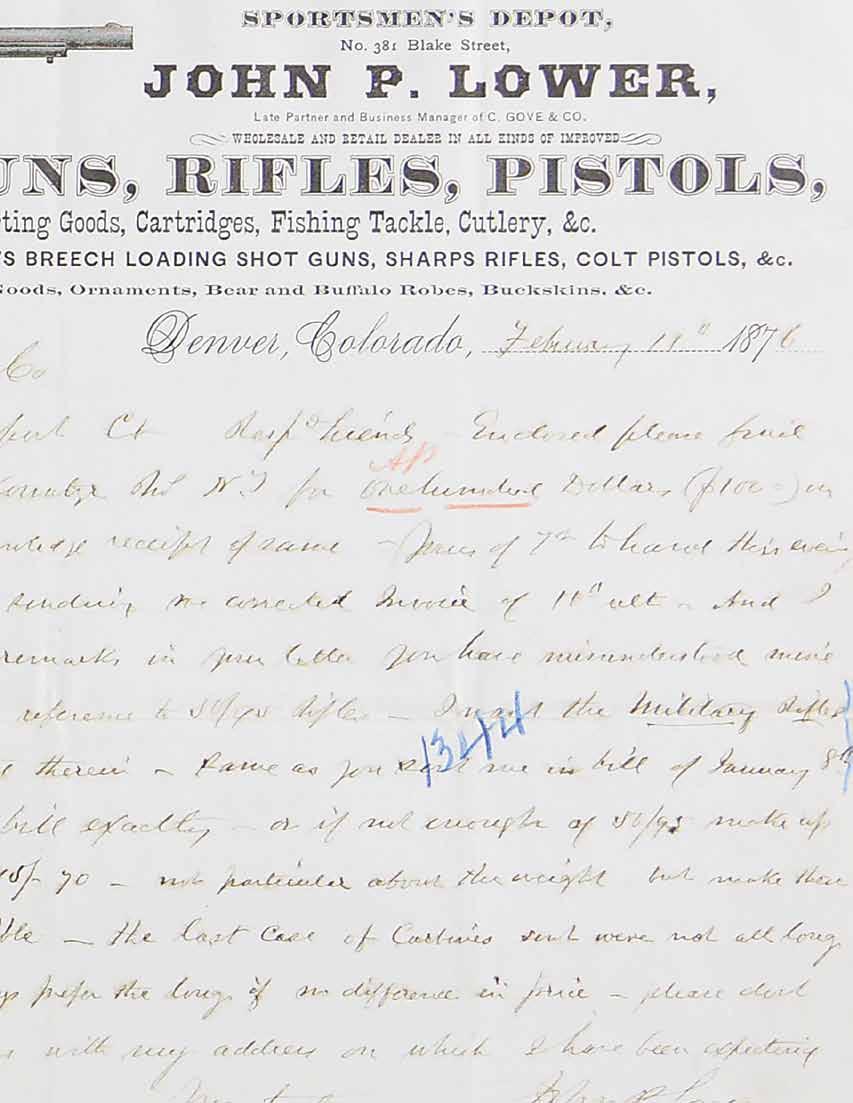 SPORTSMEN'S DEPOT,
No. 381 Blake Street,
JOHN P. LOWER,
Late Partner and Business Manager of C. GOVE & CO.
WHOLESALE AND RETAIL DEALER IN ALL KINDS OF IMPROVED
UNS, RIFLES, PISTOLS,
ting Goods, Cartridges, Fishing Tackle, Cutlery, &c.
'S BREECH LOADING SHOT GUNS, SHARPS RIFLES, COLT PISTOLS, &c.
Goods, Ornaments, Bear and Buffalo Robes, Buckskins, &c.
Denver, Colorado, February 11" 1876
Co
port Ct Resp'd friends - Enclosed please find
N.Y for one hundred Dollars ($100-) on
receipt of same - Yours of 7th to hand this
sending me corrected Invoice of 11" ult - And I
remarks in your letter you have misunderstood mine
reference to Rifles - I want the Military Rifles
1344
therein - Same as you sent me in bill of January 8th
bill exactly - or if not enough of make up
70 - not particular about the weight but make them
ble - the last case of Carbines sent were not all long
prefer the long if no difference in price - please dont
with my address on which I have been expecting
John P Lower